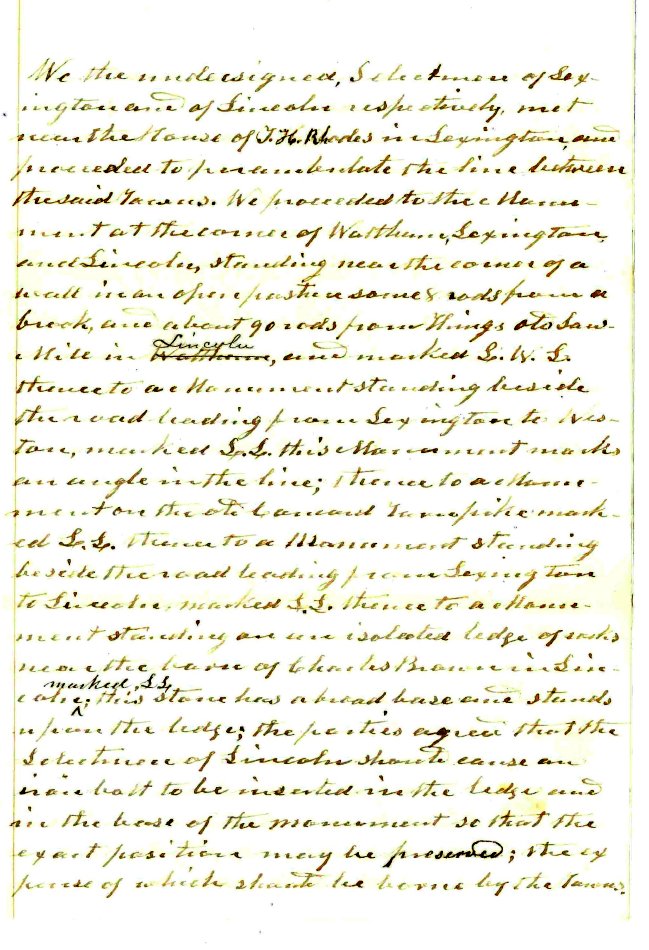 We the undersigned, Selectmen of Lex-
ington and of Lincoln respectively, met
near the House of T. H. Rhodes in Lexington, and
proceeded to perambulate the line between
the said Towns. We proceeded to the Monu-
ment at the corner of Waltham, Lexington,
and Lincoln, standing near the corner of a
wall in an open pasture some 8 rods from a
brook, and about 90 rods from old Saw-
Mill in Waltham Lincoln, and marked L. W. L.
thence to a Monument standing beside
the road leading from Lexington to Wes-
ton, marked L. L. this Monument marks
an angle in the line; thence to a Monu-
ment on the old Concord Turnpike mark-
ed L. L. thence to a Monument standing
beside the road leading from Lexington
to Lincoln, marked L. L. thence to a Monu-
ment standing on an isolated ledge of rocks
near the barn of Charles Brown in Lin-
coln; marked L. L. this stone has a broad base and stands
upon the ledge; the parties agreed that the
Selectmen of Lincoln should cause an
iron bolt to be inserted in the ledge and
in the base of the monument so that the
exact position may be preserved; the ex
pense of which should be borne by the Towns.